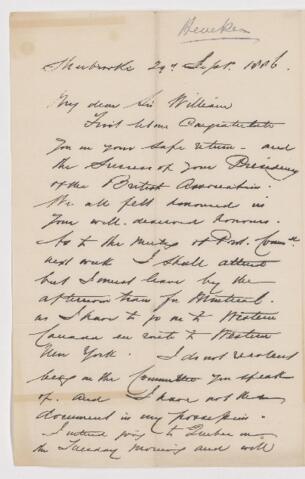 Heneker
Sherbrooke 29th Sept. 1886.
My dear Sir William
First let me Congratulate
you on your safe return - and
the success of your Presidency
of the British Association.
We all felt honoured in
your well-deserved honours.
As to the meeting of Prot. Comee
next week I shall attend
but I must leave by the
afternoon train for Montreal.
as I have to go on to Western
Canada en route to Western
New York. I do not recollect
being on the Committee you speak
of. and I have not the
document in my possession.
I intend going to Quebec on
the Tuesday morning and will